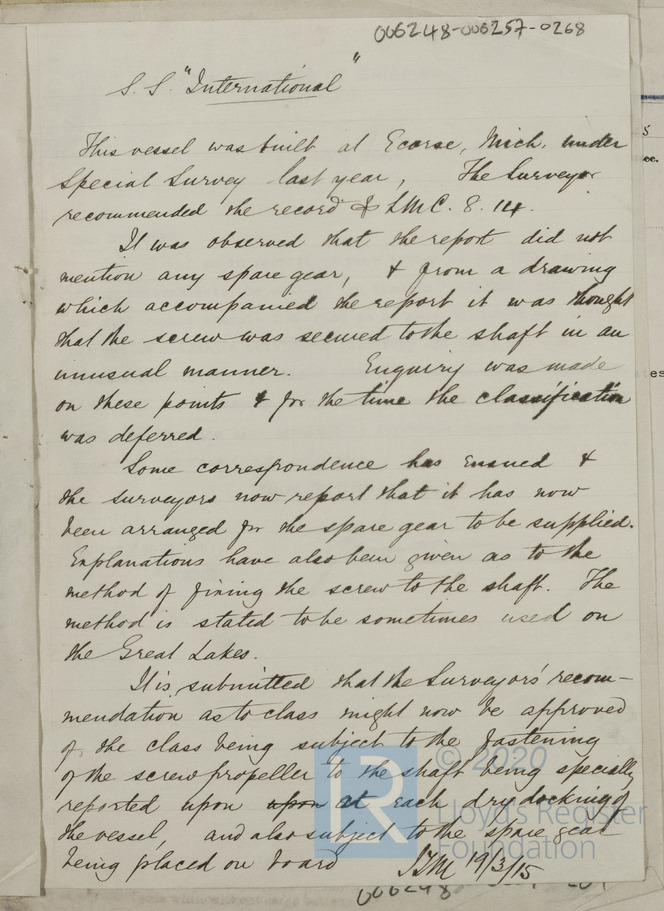 006248-006257-0268
S.S. "International"
This vessel was built at Ecorse, Mich. under
Special Survey last year, The Surveyor
recommended the record of LMC. 8.14.
It was observed that the report did not
mention any spare gear, & from a drawing
which accompanied the report it was thought
that the screw was secured to the shaft in an
unusual manner. Enquiry was made
on these points & for the time the classification
was deferred.
Some correspondence has ensued &
the surveyors now report that it has now
been arranged for the spare gear to be supplied.
Explanations have also been given as to the
method of fixing the screw to the shaft. The
method is stated to be sometimes used on
the Great Lakes.
It is submitted that the Surveyors' recom-
mendation as to class might now be approved
of the class being subject to the fastening
of the screw propeller to the shaft being specially
reported upon upon at each dry docking of
the vessel, and also subject to the spare gear
being placed on board
19/3/15
© 2020
Lloyd's Register
Foundation
006248